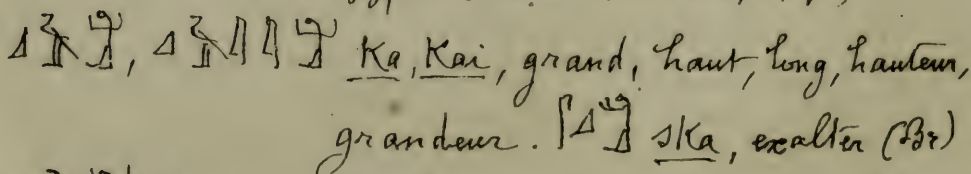 𓈎𓄿𓀠, 𓈎𓄿𓇋𓇋𓀠 Ka, Kai, grand, haut, long, hauteur,
grandeur. 𓋴𓈎𓀠 sKa, exalter (Br)